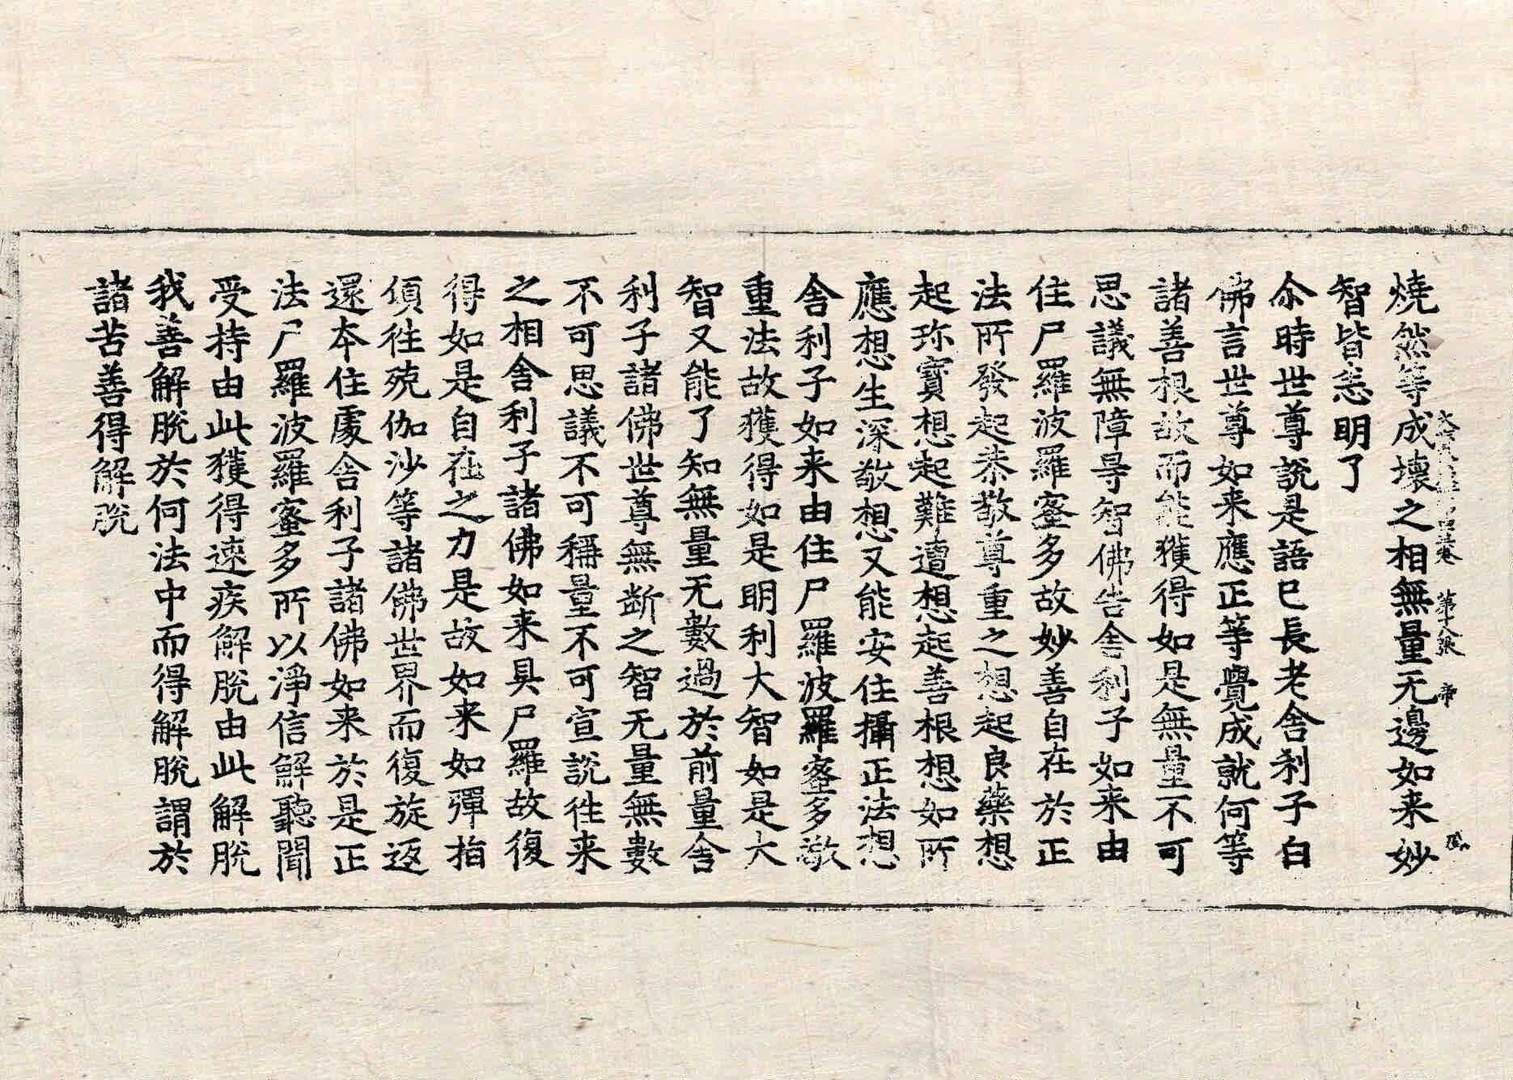 燒然等成壞之相無量无邊如来妙
智皆悉明了
尒時世尊說是語已長老舎利子白
佛言世尊如来應正等覺成就何等
諸善根故而能獲得如是無量不可
思議無障㝵智佛告舎利子如来由
住尸羅波羅蜜多故妙善自在於正
法所發起恭敬尊重之想起良藥想
起珎寳想起難遭想起善根想如所
應想生深敬想又能安住攝正法想
舎利子如来由住尸羅波羅蜜多敬
重法故獲得如是明利大智如是大
智又能了知無量无數過於前量舎
利子諸佛世尊無断之智无量無數
不可思議不可稱量不可宣說往来
之相舎利子諸佛如来具尸羅故復
得如是自在之力是故如来如彈指
頃往殑伽沙等諸佛世界而復旋返
還本住處舎利子諸佛如来於是正
法尸羅波羅蜜多所以淨信解聽聞
受持由此獲得速疾解脫由此解脫
我善解脫於何法中而得解脫謂於
諸苦善得解脫